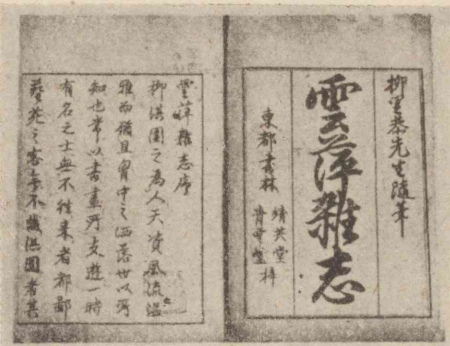 柳里恭先生随筆
雲萍雜志
東都書林
靖共堂
青雲堂
梓
雲萍雜志序
柳淇園之為人天資風流温
雅而猶且胷中之洒落世以所
知也常以書畫所交遊一時
有名之士無不往来者都鄙
藝苑之客無不識淇園者其